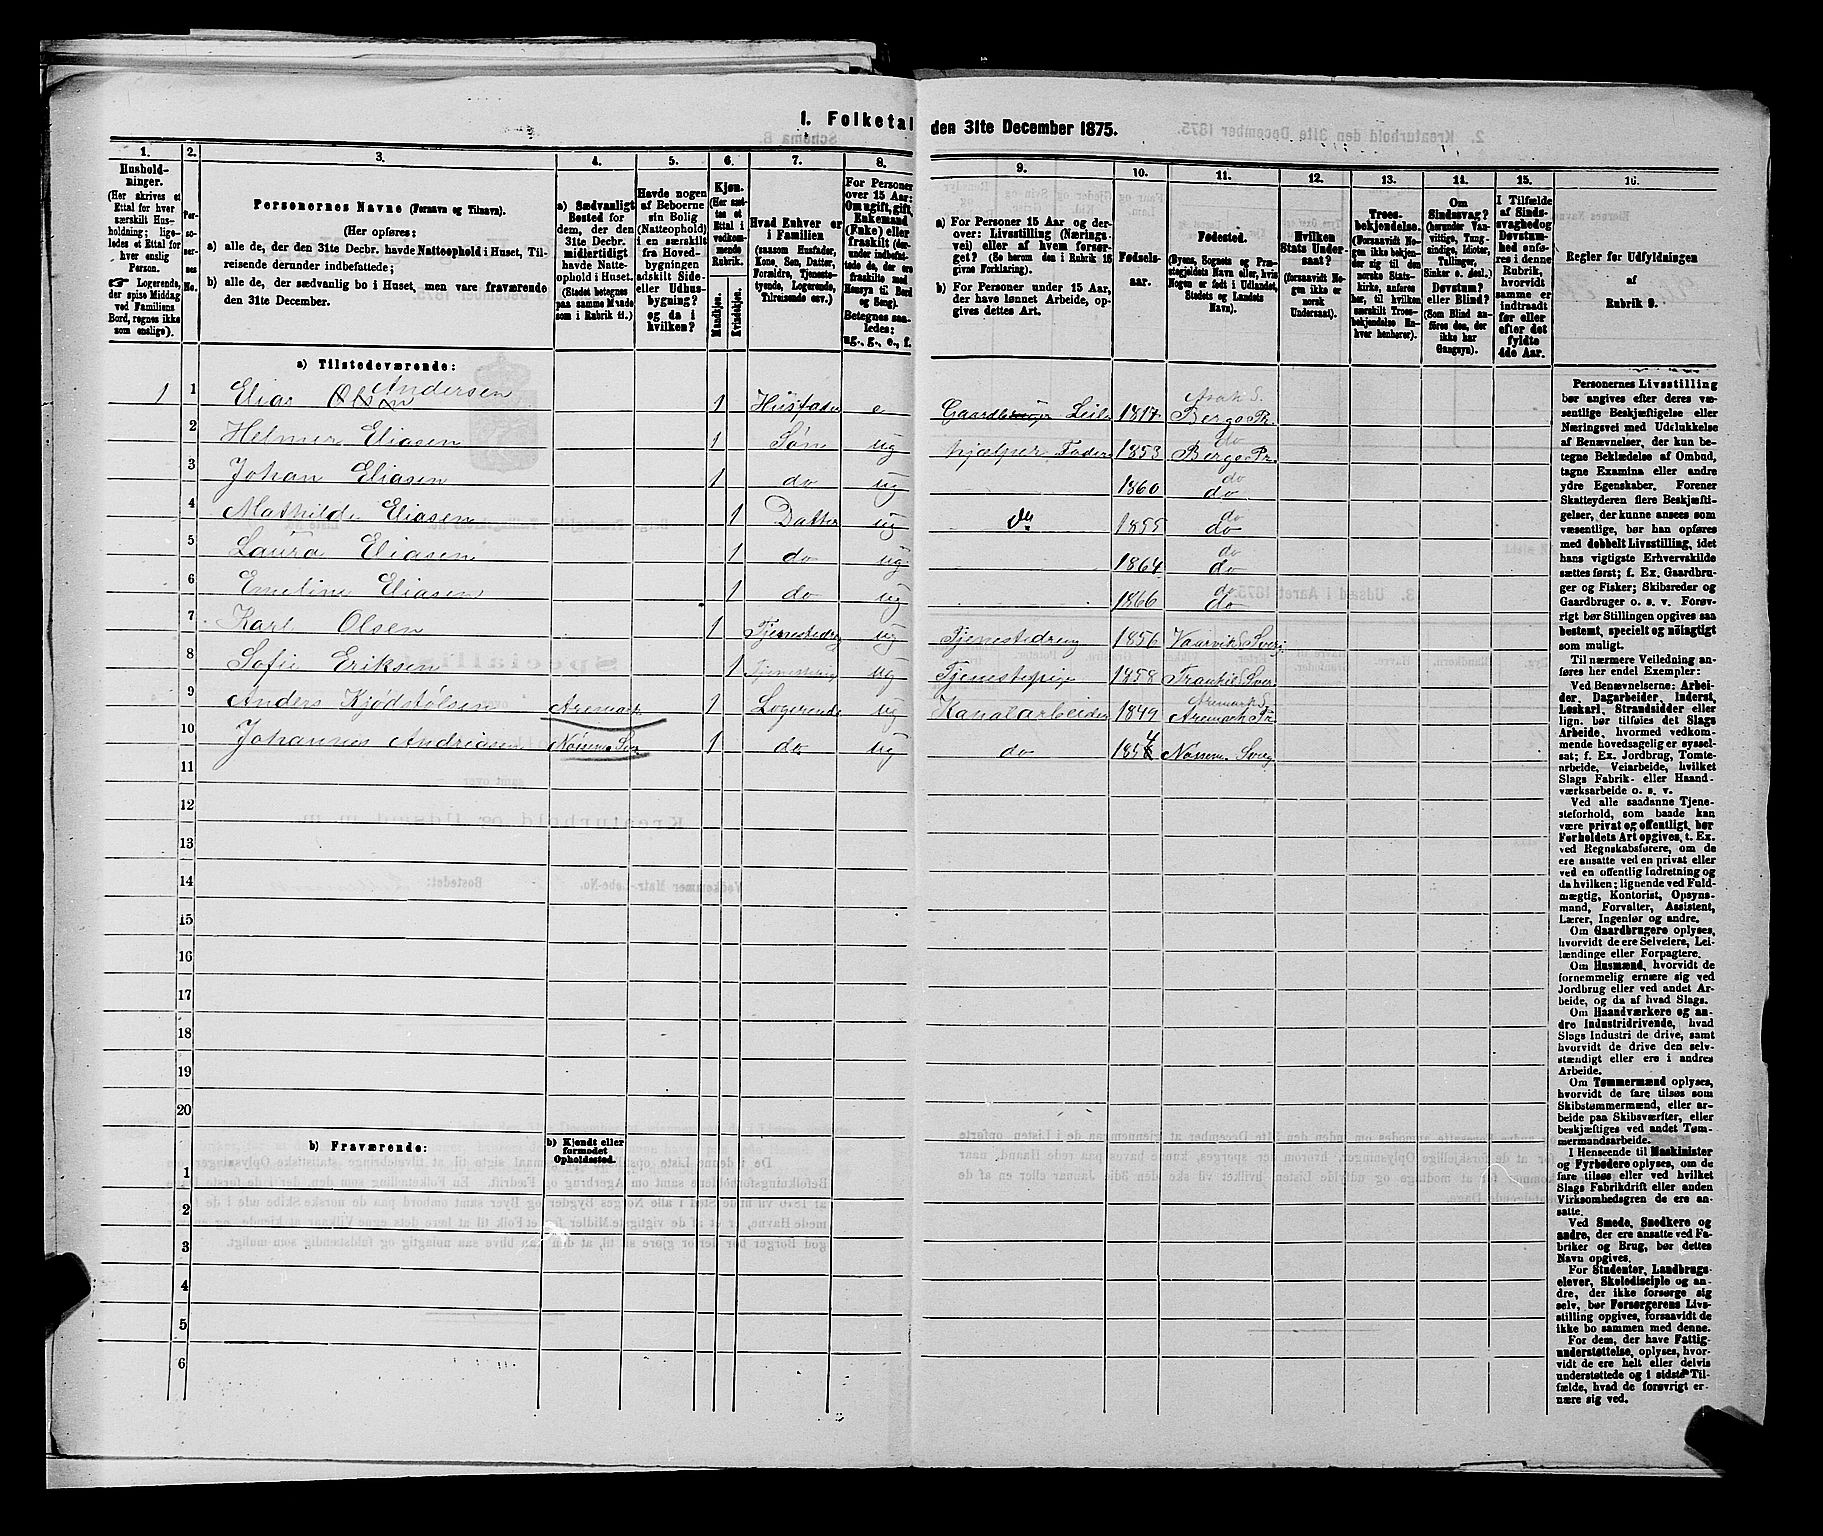 1. Folketal den 31te December 1875.
1.
Hushold-
ninger.
(Her skrives et
Ettal for hver
særskilt Hus-
holdning; lige-
ledes et Ettal for
hver enslig
Person.
Logerende,
der spise Middag
ved Familiens
Bord, regnes ikke
som enslige).
2.
Per-
so-
ner-
nes
No.
3.
Personernes Navne (Fornavn og Tilnavn).
(Her opføres:
a) alle de, der den 31te Decbr. havde Natteophold i Huset, Til-
reisende derunder indbefattede;
b) alle de, der sædvanlig bo i Huset, men vare fraværende
den 31te December.
4.
a) Sædvanligt
Bosted for
dem, der den
31te Decbr.
midlertidigt
havde Natte-
ophold i Huset.
(Stedet betegnes
paa samme Maade
som i Rubrik 11.)
5.
Havde nogen
af Beboerne
sin Bolig
(Natteophold)
i en særskilt
fra Hoved-
bygningen
adskilt Side-
eller Udhus-
bygning?
og da i
hvilken?
6.
Kjøn.
(Her sæt-
tes et
Ettal i
vedkom-
mende
Rubrik.
Mandkjøn.
Kvindekjøn.
7.
Hvad Enhver er
i Familien
(saasom Husfader,
Kone, Søn, Datter,
Forældre, Tjeneste-
tyende, Logerende,
Tilreisende osv.)
8.
For Personer
over 15 Aar:
Om ugift, gift,
Enkemand
(Enke) eller
fraskilt (der-
under indbefat-
tede de, der ere
fraskilte med
Hensyn til Bord
og Seng).
Betegnes saa-
ledes:
ug., g., e., f.
9.
a) For Personer 15 Aar og der-
over: Livsstilling (Nærings-
vei) eller af hvem forsør-
get? (Se herom den i Rubrik 16
givne Forklaring).
b) For Personer under 15 Aar,
der have lønnet Arbeide, op-
gives dettes Art.
10.
Fødsels-
aar.
11.
Fødested.
(Byens, Sognets og Præ-
stegjeldets Navn eller, hvis
Nogen er født i Udlandet,
Stedets og Landets
Navn).
12.
Hvilken
Stats Under-
saat?
(forsaavidt No-
gen ikke er
norsk
Undersaat).
13.
Troes-
bekjendelse.
(Forsaavidt No-
gen ikke bekjen-
der sig til den
norske Stats-
kirke, anføres
her, til hvilken
særskilt Troes-
bekjendelse En-
hver henhører).
14.
Om
Sindssvag?
(herunder Van-
vittige, Tung-
sindige, Idioter,
Tullinger,
Sinker o. desl.)
Døvstum?
eller Blind?
(Som Blind an-
føres den, der
ikke har
Gangsyn).
15.
I Tilfælde
af Sinds-
svaghed og
Døvstum-
hed anfø-
res i denne
Rubrik,
hvorvidt
samme er
indtraadt
før eller
efter det
fyldte
4de Aar.
16.
Regler for Udfyldningen
af
Rubrik 9.
a) Tilstedeværende:
1 1 Elias Olsen Andersen 1 Husfader e Gaardbruger Leil. 1817 Asak S. Bergs Pr.
2 Helmer Eliasen 1 Søn ug hjælper Fader 1853 do Bergs Pr.
3 Johan Eliasen 1 do ug 1860 do do
4 Mathilde Eliasen 1 Datter ug do 1855 do do
5 Laura Eliasen 1 do ug 1864 do do
6 Emeline Eliasen 1 do ug 1866 do do
7 Karl Olsen 1 Tjenestedreng ug Tjenestedreng 1856 Vaarvik S Sverig
8 Sofie Eriksen 1 Tjenestepige ug Tjenestepige 1858 Sver
9 Anders Kjødstølsen Aremark 1 Logerende ug Kanalarbeider 1849 Aremark S Aremark Pr.
10 Johannes Andriasen Nössem. Sver 1 do ug do 1854 Nössem. Sverg
11
12
13
14
15
16
17
18
19
20
b) Fraværende:
b) Kjendt eller
formodet
Opholdssted.
1
2
3
4
5
6
Personernes Livsstilling
bør angives efter deres væ-
sentlige Beskjæftigelse eller
Næringsvei med Udelukkelse
af Benævnelser, der kun be-
tegne Beklædelse af Ombud,
tagne Examina eller andre
ydre Egenskaber. Forener
Skatteyderen flere Beskjæfti-
gelser, der kunne ansees som
væsentlige, bør han opføres
med dobbelt Livsstilling, idet
hans vigtigste Erhvervskilde
sættes først; f. Ex. Gaardbru-
ger og Fisker; Skibsreder og
Gaardbruger o. s. v. Forøv-
rigt bør Stillingen opgives saa
bestemt, specielt og nöiagtigt
som muligt.
Til nærmere Veiledning an-
føres her endel Exempler:
Ved Benævnelserne: Arbei-
der, Dagarbeider, Inderst,
Løskarl, Strandsidder eller
lign. bør tilføies det Slags
Arbeide, hvormed vedkom-
mende hovedsagelig er syssel-
sat; f. Ex. Jordbrug, Tomte-
arbeide, Veiarbeide, hvilket
Slags Fabrik- eller Haand-
værksarbeide o. s. v.
Ved alle saadanne Tjene-
steforhold, som baade kan
være privat og offentligt, bør
Forholdets Art opgives, t. Ex.
ved Regnskabsførere, om de
ere ansatte ved en privat eller
ved en offentlig Indretning og
da hvilken; lignende ved Fuld-
mægtig, Kontorist, Opsyns-
mand, Forvalter, Assistent,
Lærer, Ingeniør og andre.
Om Gaardbrugere oplyses,
hvorvidt de ere Selveiere, Lei-
lændinge eller Forpagtere.
Om Husmænd, hvorvidt de
fornemmelig ernære sig ved
Jordbrug eller ved andet Ar-
beide, og da af hvad Slags.
Om Haandværkere og an-
dre Industridrivende, hvad
Slags Industri de drive, samt
hvorvidt de drive den selv-
stændigt eller ere i andres
Arbeide.
Om Tømmermænd oplyses,
hvorvidt de fare tilsøs som
Skibstømmermænd, eller ar-
beide paa Skibsværfter, eller
beskjæftiges ved andet Tøm-
mermandsarbeide.
I Henseende til Maskinister
og Fyrbødere oplyses, om de
fare tilsøs eller ved hvilket
Slags Fabrikdrift eller anden
Virksomhedsgren de ere an-
satte.
Ved Smede, Snedkere og
andre, der ere ansatte ved Fa-
briker og Brug, bør dettes
Navn opgives.
For Studenter, Landbrugs-
elever, Skoledisciple og an-
dre, der ikke forsørge sig
selv, bør Forsørgerens Livs-
stilling opgives, forsaavidt de
ikke bo sammen med denne.
For dem, der have Fattig-
understøttelse, oplyses, hvor-
vidt de ere helt eller delvis
understøttede og i sidste Til-
fælde, hvad de forøvrigt er-
nære sig ved.